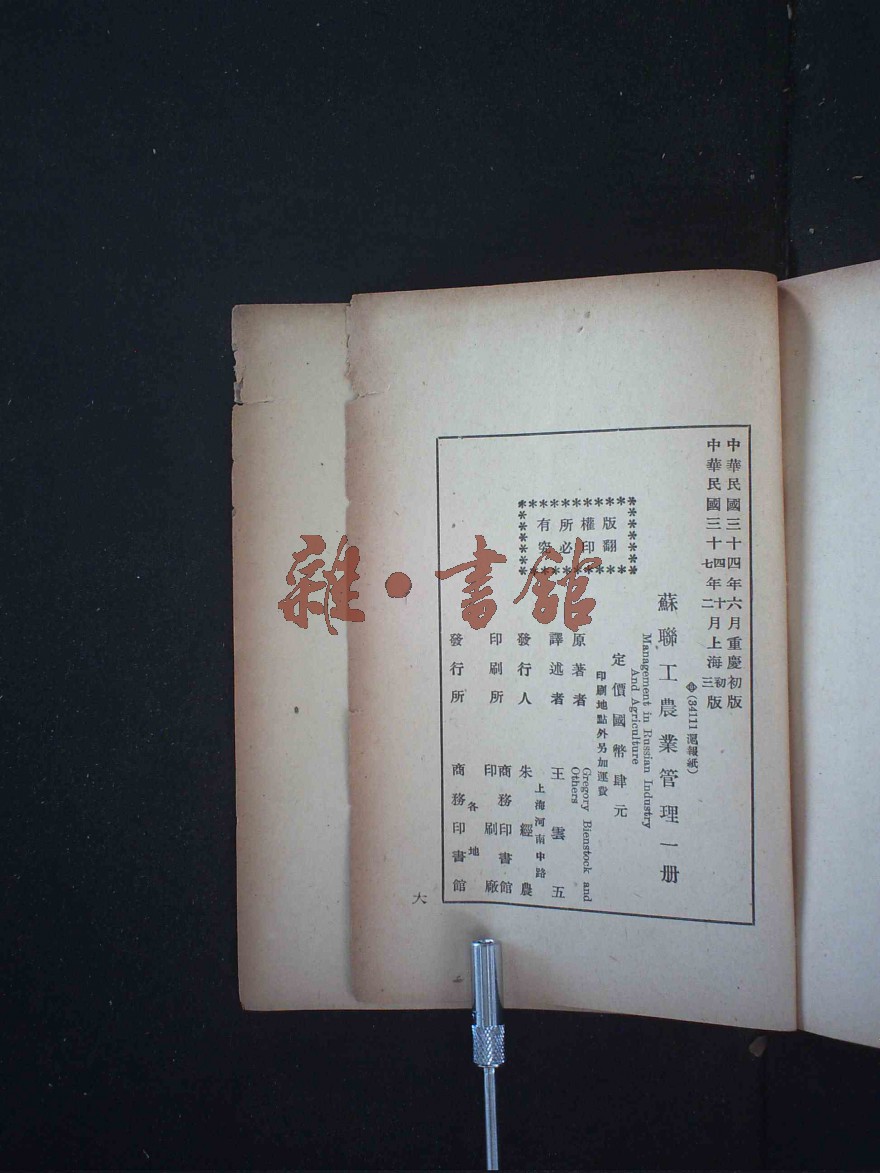 中華民國三十四年六月重慶初版
中華民國三十四七年十二月上海初三版
(34111 滬報紙)
蘇聯工農業管理一册
Management in Russian Industry
And Agriculture
定價國幣肆元
印刷地點外另加運費
版權所有
翻印必究
原著者 Gregory Bienstock and
Others
譯述者 王雲五
發行人 朱經農
上海河南中路
印刷所 商務印書館
印刷廠
發行所 各地
商務印書館
大
雜·書館